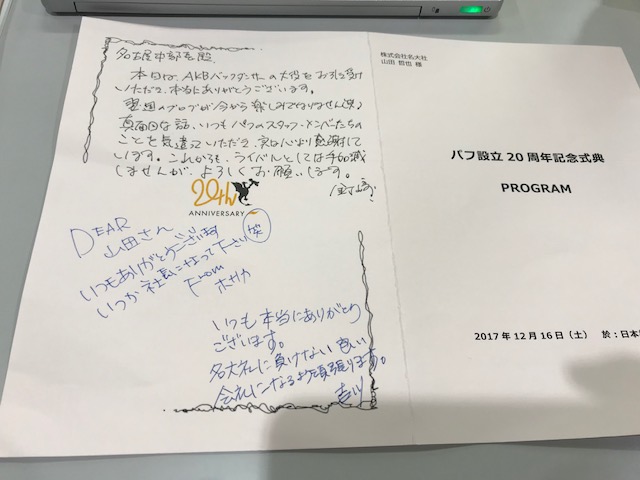 名古屋中部支部殿
本日は、AKBバックダンサーの大役をお引き受け
いただき、本当にありがとうございます。
翌週のブログが今から楽しみでなりません(笑)
真面目な話、いつもパフのスタッフ・メンバーたちの
ことを気遣っていただき、実は心より感謝して
います。これからも、ライバルとしては手加減
しませんが、よろしくお願いします。
20th
ANNIVERSARY
DEAR
山田さん
いつもありがとうございます
いつか社長になって下さい(笑)
From
ホサカ
いつも本当にありがとう
ございます。
名大社に負けない良い
会社になるよう頑張ります。
吉川
株式会社名大社
山田 哲也 様
パフ設立20周年記念式典
PROGRAM
2017年12月16日(土) 於:日本